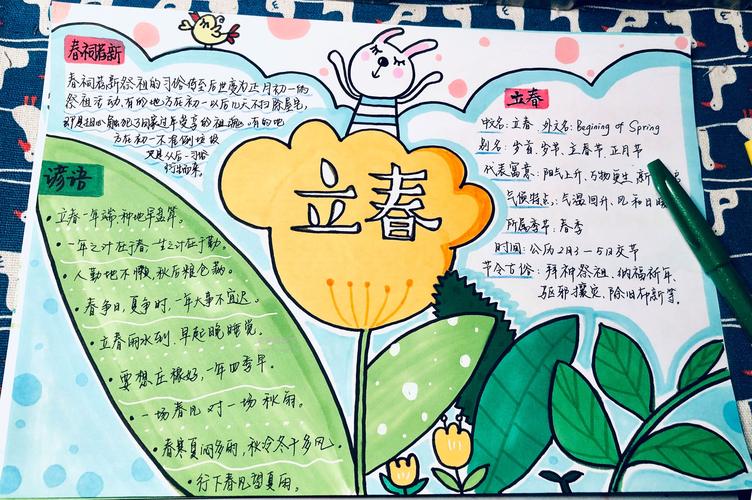 春祠荐新
春祠荐新祭祖的习俗传至后世变为正月初一的
祭祖活动,有的地方在初一以后几天不扫除屋宅,
过年受享的祖魂。有的地
方在初一不准倒垃圾
习俗
谚语
立春一年端,种地早盘算。
一年之计在于春,一生之计在于勤。
人勤地不懒,秋后粮仓满。
春争日,夏争时,一年大事不宜迟。
立春雨水到,早起晚睡觉。
要想庄稼好,一年四季早。
一场春风对一场秋雨。
春寒夏闷多雨,秋冷冬干多风。
行下春风望夏雨。
立春
立春
中名:立春 外文名:Begining of Spring
别名:岁首、岁节、立春节、正月节
代表寓意:阳气上升、万物更生、新
气候特点:气温回升、风和日暖
所属季节:春季
时间:公历2月3-5日交节
节令古俗:拜神祭祖、纳福祈年、
驱邪攘灾、除旧布新等。